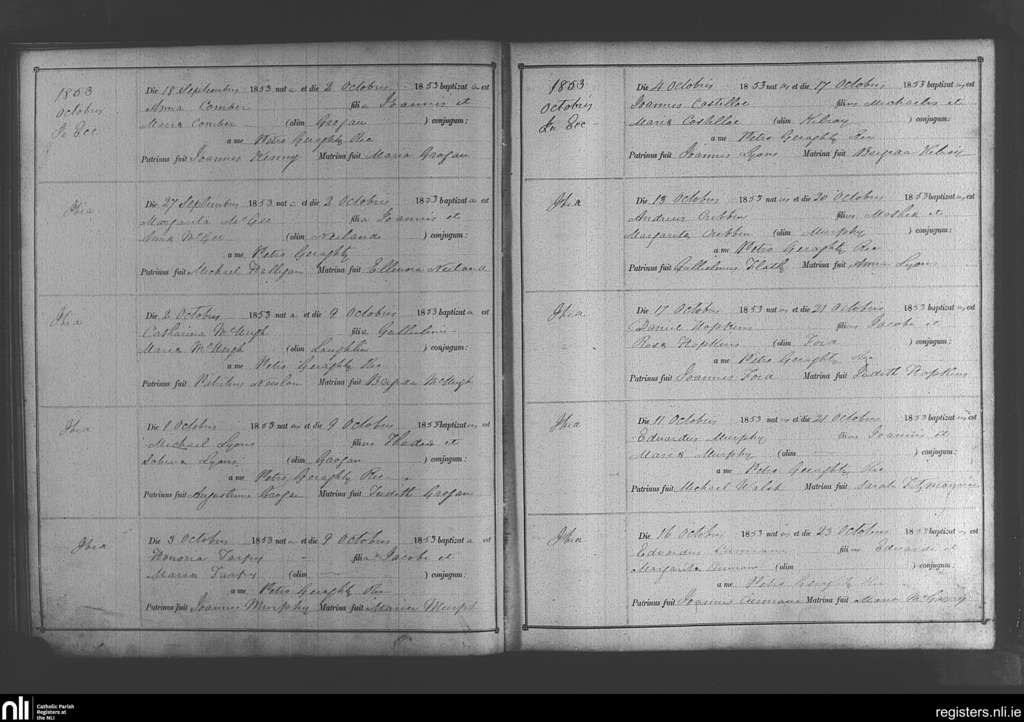 1853
Octobris
In Ecc
Die 18 Septembris 1853 nat a et die 2 Octobris 1853 baptizat a est
Anna Comber fili a Joannis et
Maria Comber (olim Grogan ) conjugum:
a me Petro Geraghty Rec
Patrinus fuit Joannes Kenny Matrina fuit Maria Grogan
Ibia
Die 27 Septembris 1853 nat a et die 2 Octobris 1853 baptizat a est
Margarita McGee fili a Joannis et
Anna McGee (olim Neiland ) conjugum:
a me Petro Geraghty
Patrinus fuit Michael Matrina fuit Ellenora Neiland
Ibia
Die 2 Octobris 1853 nat a et die 9 Octobris 1853 baptizat a est
Catharina McHugh fili a Gulhelmi
Maria McHugh (olim Laughlin ) conjugum:
a me Petro Geraghty Rec
Patrinus fuit Matrina fuit Brigida McHugh
Ibia
Die 1 Octobris 1853 nat us et die 9 Octobris 1853 baptizat us est
Michael Lyons filius et
Lyons (olim Grogan ) conjugum:
a me Petro Geraghty Rec
Patrinus fuit Augustinus Grogan Matrina fuit Judith Grogan
Ibia
Die 3 Octobris 1853 nat a et die 9 Octobris 1853 baptizat a est
Honoria Tarpy fili a Jacobi et
Maria Tarpy (olim ) conjugum:
a me Petro Geraghty Rec
Patrinus fuit Joannes Murphy Matrina fuit Maria Murph
1853
Octobris
In Ecc
Die 4 Octobris 1853 nat us et die 17 Octobris 1853 baptizat us est
Joannes Costelloe filius Michaelis et
Maria Costelloe (olim Kilroy ) conjugum:
a me Petro Geraghty Rec
Patrinus fuit Joannes Lyons Matrina fuit Brigida Kilroy
Ibia
Die 13 Octobris 1853 nat us et die 20 Octobris 1853 baptizat us est
Andreas Cribbin filius et
Margarita Cribbin (olim Murphy ) conjugum:
a me Petro Geraghty Rec
Patrinus fuit Gulhelmus Matrina fuit Anna Lyons
Ibia
Die 17 Octobris 1853 nat us et die 21 Octobris 1853 baptizat us est
Daniel Hopkins filius Jacobi et
Rosa Hopkins (olim Ford ) conjugum:
a me Petro Geraghty Rec
Patrinus fuit Joannes Ford Matrina fuit Judith Hopkins
Ibia
Die 11 Octobris 1853 nat us et die 21 Octobris 1853 baptizat us est
Eduardus Murphy filius Joannis et
Maria Murphy (olim ) conjugum:
a me Petro Geraghty Rec
Patrinus fuit Michael Walsh Matrina fuit Sarah Fitzmaurice
Ibia
Die 16 Octobris 1853 nat us et die 23 Octobris 1853 baptizat us est
Eduardus filius Eduardi et
Margarita (olim ) conjugum:
a me Petro Geraghty Rec
Patrinus fuit Joannes Matrina fuit Maria
nli Catholic Parish
Registers at
the NLI
registers.nli.ie